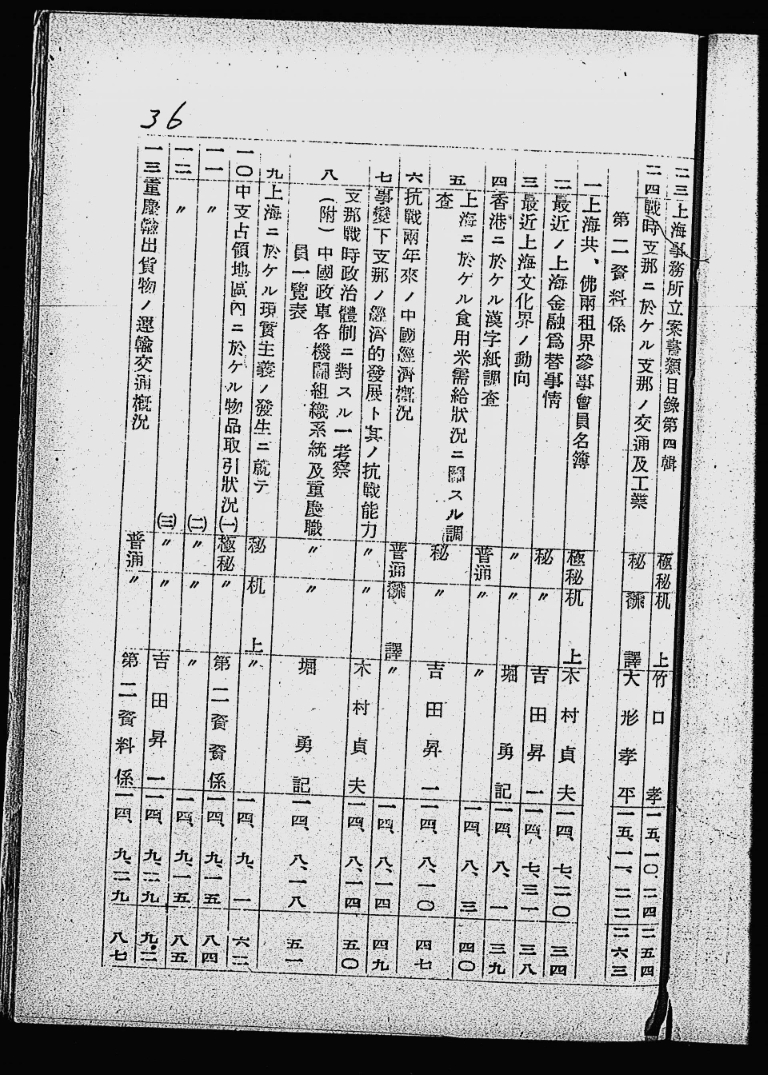 36
二三 上海事務所立案書類目錄第四輯 極秘 机上 竹口孝 一五、一〇、二四 二五四
二四 戰時支那ニ於ケル支那ノ交通及工業 秘 飜譯 大形孝平 一五、一一、二二 二六三
第二資料係
一 上海共、佛兩租界參事會員名簿 極秘 机上 木村貞夫 一四、七、二〇 三四
二 最近ノ上海金融爲替事情 秘 〃 吉田昇一 一四、七、三一 三八
三 最近上海文化界ノ動向 〃 〃 堀勇記 一四、八、一 三九
四 香港ニ於ケル漢字紙調査 普通 〃 〃 一四、八、三 四〇
五 上海ニ於ケル食用米需給狀況ニ關スル調
査 秘 〃 吉田昇一 一四、八、一〇 四七
六 抗戰兩年來ノ中國經濟槪況 普通 飜譯 〃 一四、八、一四 四九
七 事變下支那ノ經濟的發展ト其ノ抗戰能力 〃 〃 木村貞夫 一四、八、一四 五〇
八 支那戰時政治體制ニ對スル一考察
(附)中國政軍各機關組織系統及重慶職
員一覽表 〃 〃 堀勇記 一四、八、一八 五一
九 上海ニ於ケル現實主義ノ發生ニ就テ 秘 机上 〃 一四、九、一 六二
一〇 中支占領地區內ニ於ケル物品取引狀況(一) 極秘 〃 第二資資係 一四、九、一五 八四
一一 〃 (二) 〃 〃 〃 一四、九、一五 八五
一二 〃 (三) 〃 〃 吉田昇一 一四、九、二九 九二
一三 重慶輸出貨物ノ運輸交通槪況 普通 〃 第二資料係 一四、九、二九 八七